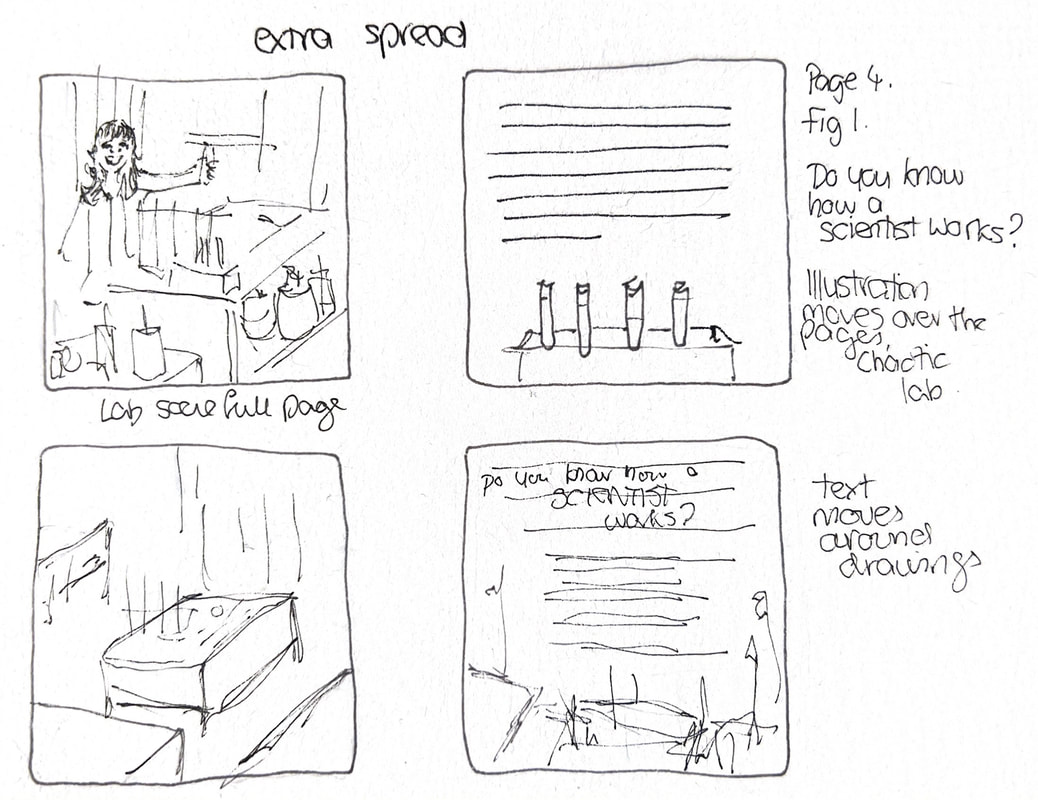 extra spread
Page 4.
Fig 1.
Do you know
how a
scientist works?
Illustration
moves over the
pages,
chaotic
lab.
Lab scene full page
Do you know how a
SCIENTIST
works?
text
moves
around
drawings